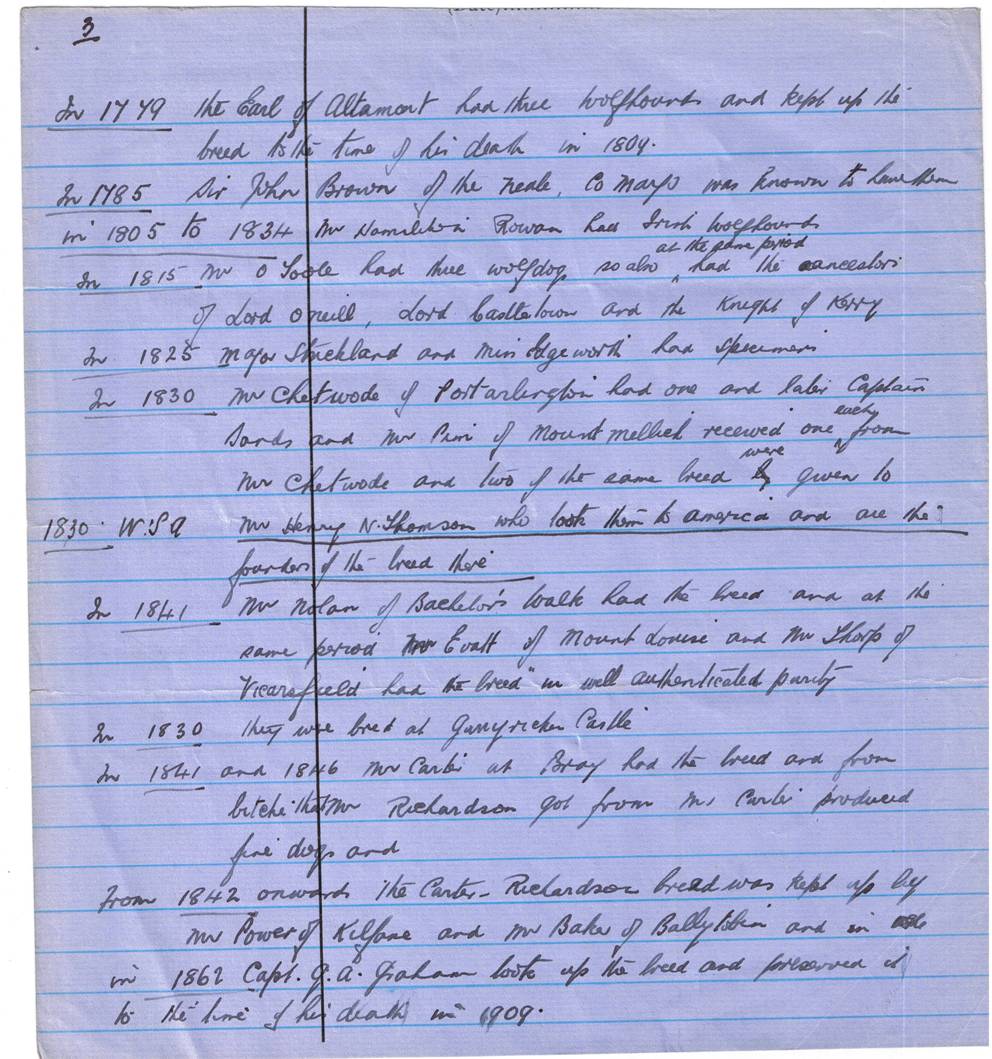 (Date)
3
In 1779 the Earl of Altamont had three wolfhounds and kept up the
breed to the time of his death in 1809.
In 1785 Sir John Brown of the Neale, Co Mayo was known to have them
in 1805 to 1834 Mr Hamilton Rowan had Irish wolfhounds
at the same period
In 1815 Mr O Toole had three wolfdog, so also had the ancestors
of Lord O'neill, Lord Castletown and the Knight of Kerry
In 1825 Major Strickland and Miss Edgeworth had specimens
In 1830 Mr Chetwode of Portarlington had one and later Captain
each
Sands and Mr Pim of Mountmellick received one from
were
Mr Chetwode and two of the same breed given to
1830 Mr Henry N. Thomson who took them to america and are the
founders of the breed there
In 1841 Mr Nolan of Bachelor's Walk had the breed and at the
same period Mr Evatt of Mount Louise and Mr Thorp of
Vicarsfield had the breed "in well authenticated purity
In 1830 they were bred at Castle
In 1841 and 1846 Mr Carter at Bray had the breed and from
bitche that Mr Richardson got from Mr Carter produced
fine dogs and
From 1842 onwards the Carter-Richardson breed was kept up by
Mr Power of Kilfane and Mr Baker of Ballytobin and in
in 1862 Capt. G.A. Graham took up the breed and preserved it
to the time of his death in 1909.